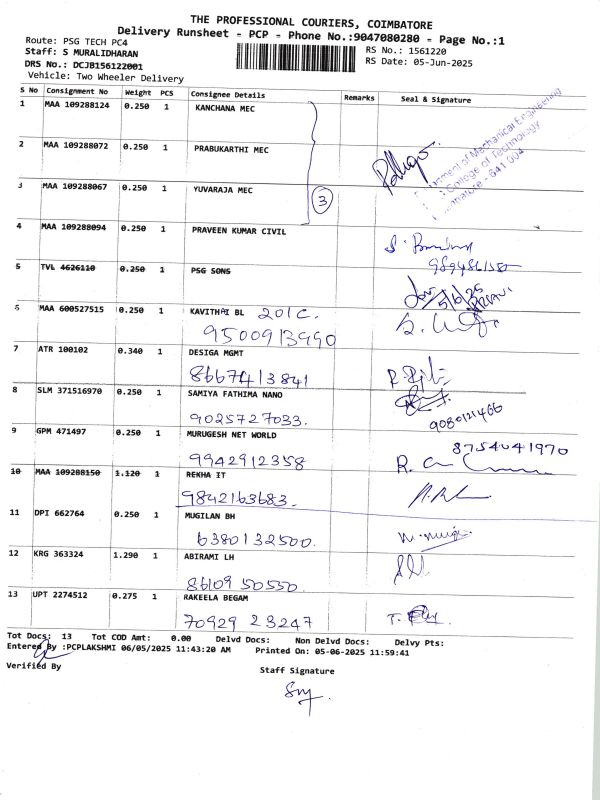 THE PROFESSIONAL COURIERS, COIMBATORE
Delivery Runsheet - PCP - Phone No.:9047080280 - Page No.:1
Route: PSG TECH PC4
RS No.: 1561220
Staff: S MURALIDHARAN
RS Date: 05-Jun-2025
DRS No.: DCJB156122001
Vehicle: Two Wheeler Delivery
S No Consignment No Weight PCS Consignee Details Remarks Seal & Signature
1 MAA 109288124 0.250 1 KANCHANA MEC
2 MAA 109288072 0.250 1 PRABUKARTHI MEC
Department of Mechanical Engineering
College of Technology
641 004
3 MAA 109288067 0.250 1 YUVARAJA MEC
3
4 MAA 109288094 0.250 1 PRAVEEN KUMAR CIVIL
5 TVL 4626110 0.250 1 PSG SONS
5/6/25
6 MAA 600527515 0.250 1 KAVITHAI BL 201C.
9500913990
7 ATR 100102 0.340 1 DESIGA MGMT
8667413841
8 SLM 371516970 0.250 1 SAMIYA FATHIMA NANO
9025727033. 9080121466
9 GPM 471497 0.250 1 MURUGESH NET WORLD
8754041970
9942912358
10 MAA 109288150 1.120 1 REKHA IT
9842163683.
11 DPI 662764 0.250 1 MUGILAN BH
6380132500.
12 KRG 363324 1.290 1 ABIRAMI LH
8610950550.
13 UPT 2274512 0.275 1 RAKEELA BEGAM
70929 23247
Tot Docs: 13 Tot COD Amt: 0.00 Delvd Docs: Non Delvd Docs: Delvy Pts:
Entered By :PCPLAKSHMI 06/05/2025 11:43:20 AM Printed On: 05-06-2025 11:59:41
Verified By
Staff Signature